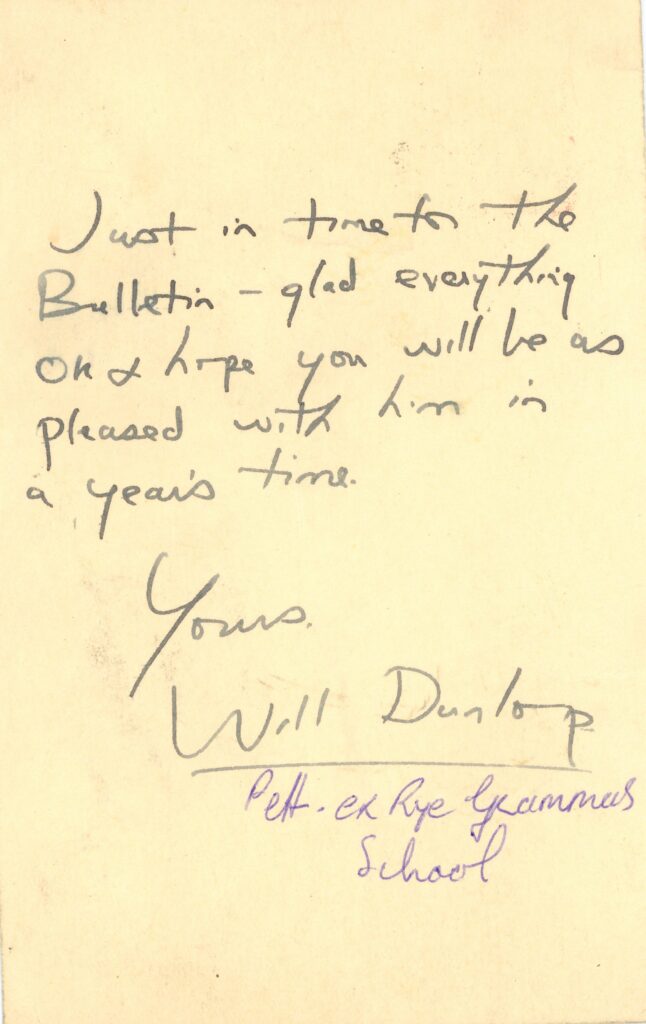 Just in time for the
Bulletin - glad everything
OK & hope you will be as
pleased with him in
a year's time.
Yours.
Will Dunlop
Pett - ex Rye Grammar
School